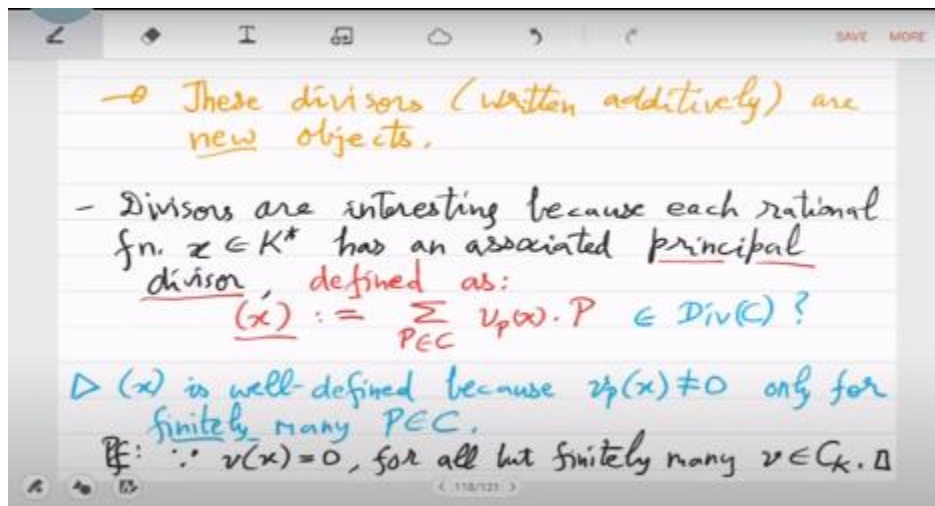 SAVE MORE
→ These divisors (written additively) are
new objects.
- Divisors are interesting because each rational
fn. x ∈ K* has an associated principal
divisor, defined as:
(x) := Σ_{P∈C} v_P(x). P ∈ Div(C) ?
▷ (x) is well-defined because v_P(x) ≠ 0 only for
finitely many P∈C.
Pf: ∵ v(x)=0, for all but finitely many v ∈ C_K. □
118/121